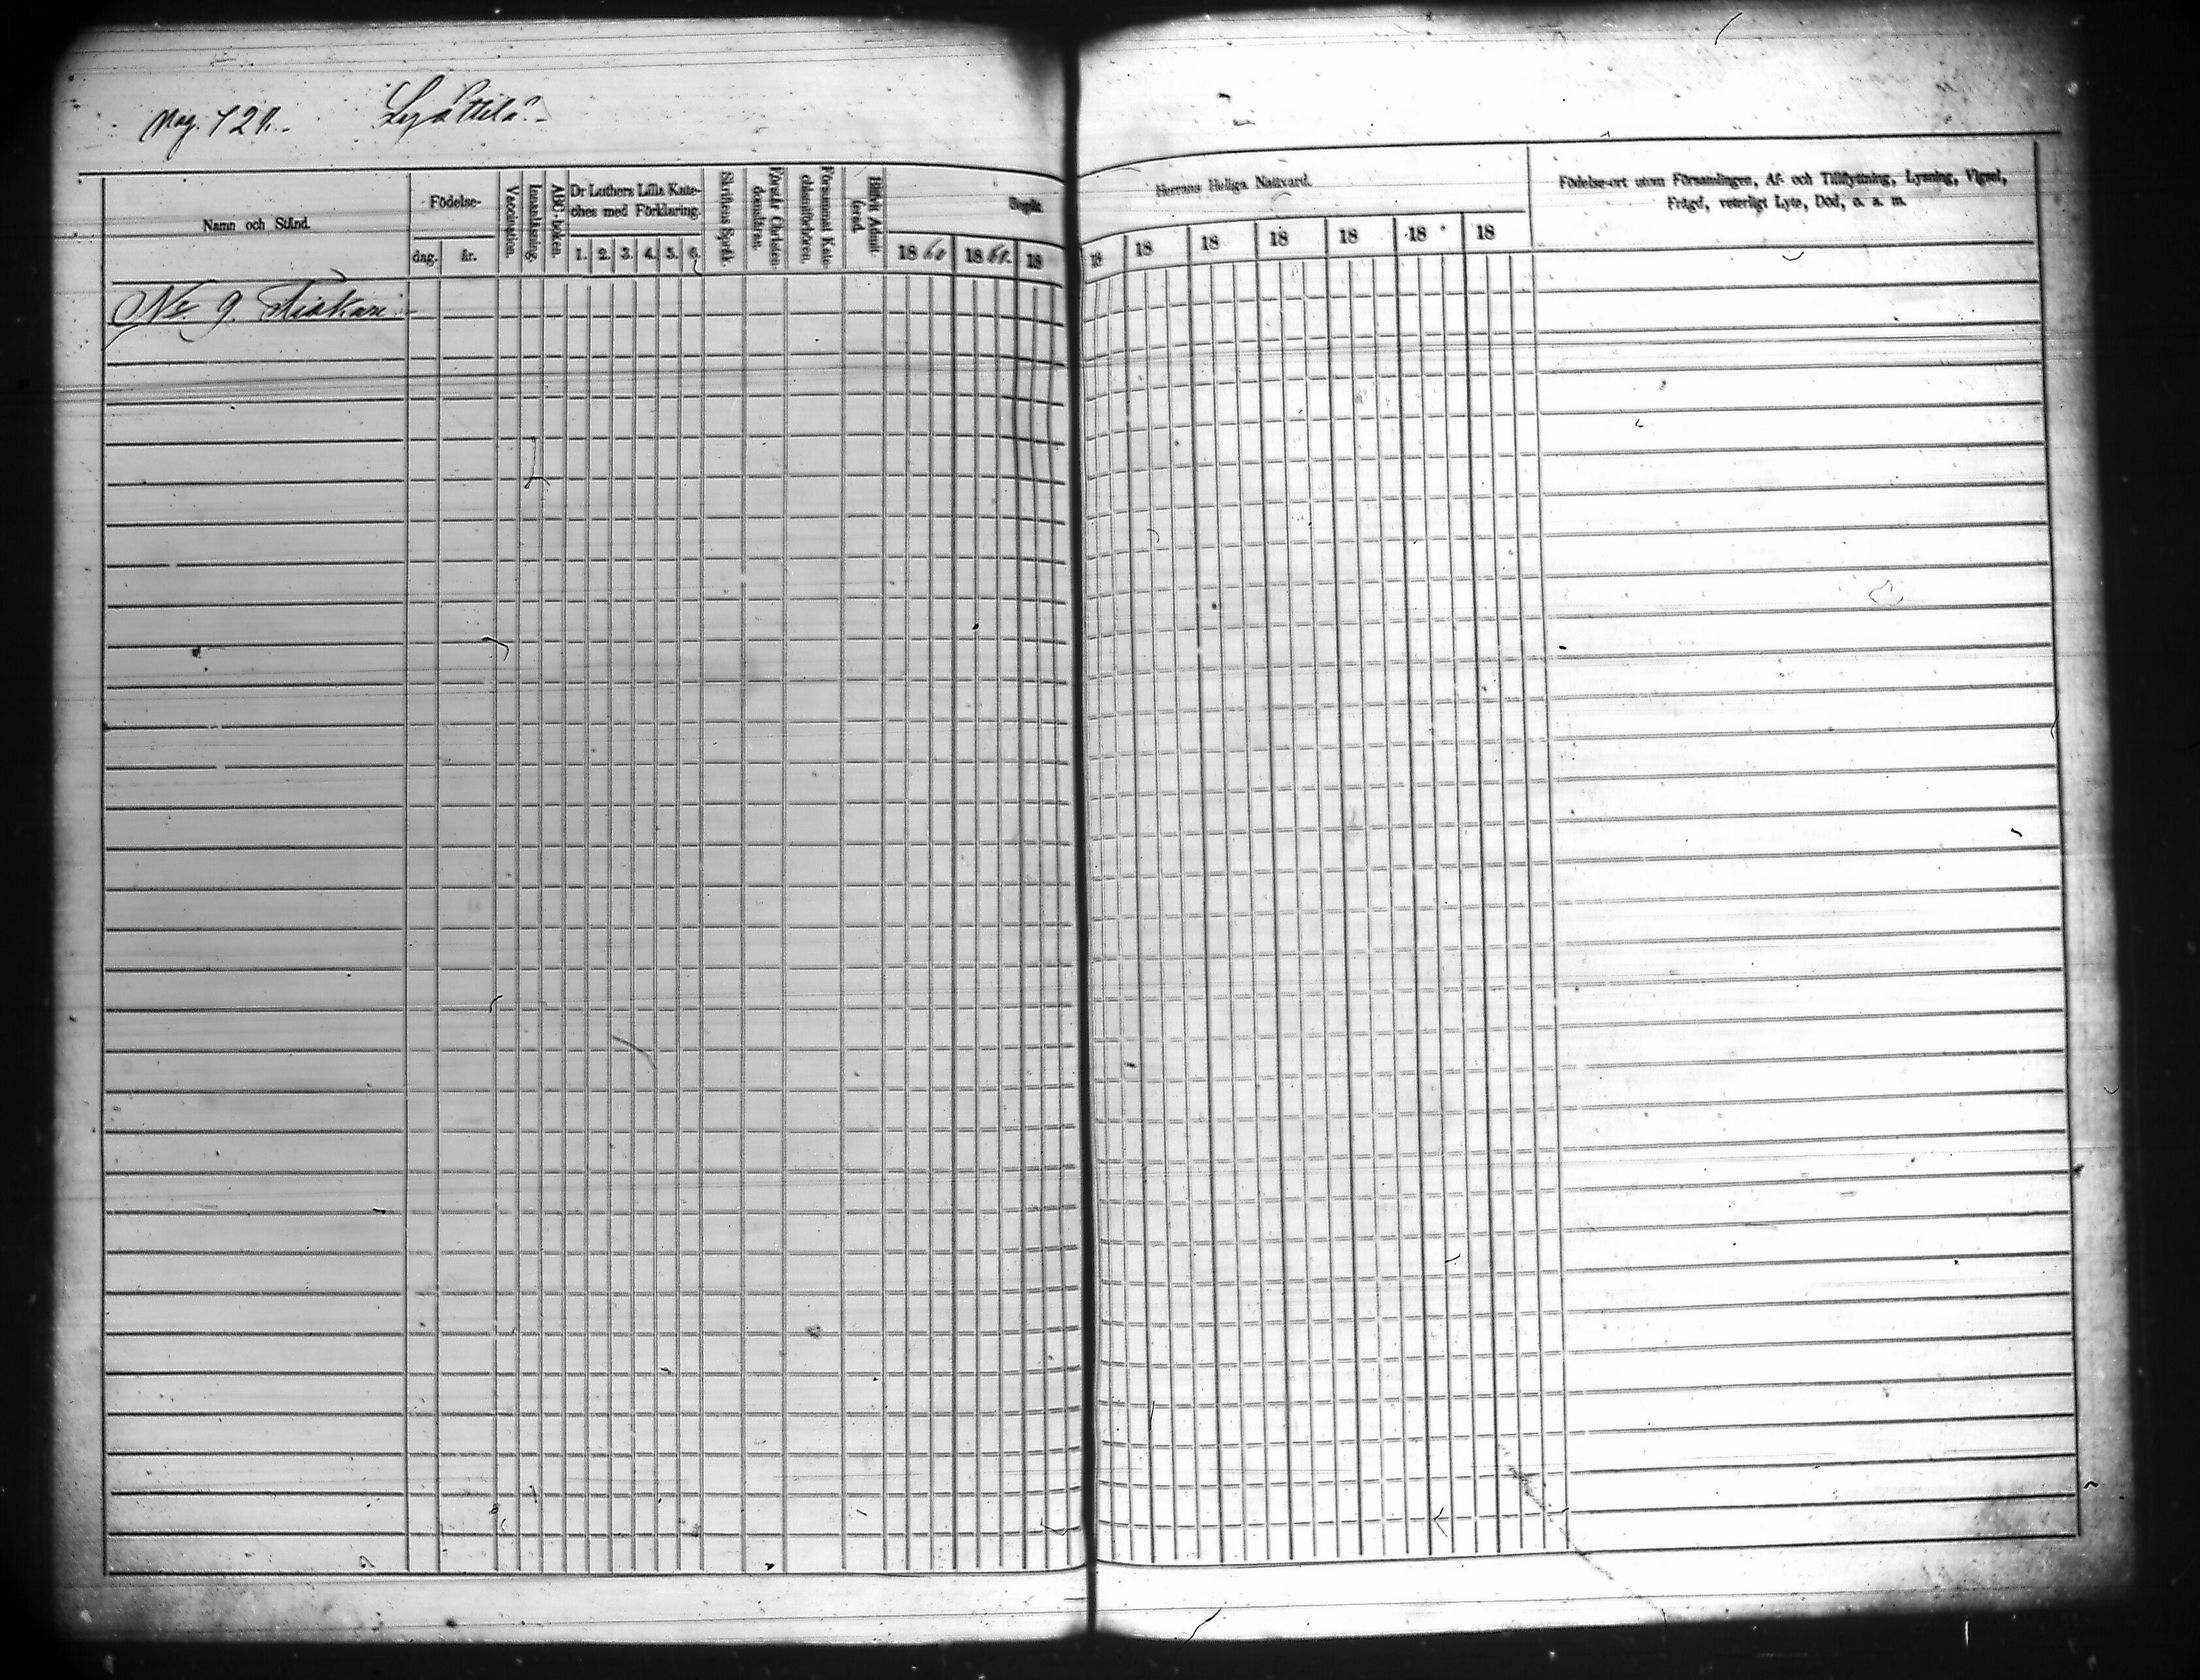 Pag. 121.
Lyöttilä
Namn och Stånd.
Födelse-
dag.
år.
Vaccination.
Innanläsning.
ABC-boken.
Dr Luthers Lilla Kate-
ches med Förklaring.
1. 2. 3. 4. 5. 6.
Skriftens Språk.
Förstår Christen-
domsläran.
Försummat Kate-
chismiförhören.
Blifvit Admit-
terad.
Begått
Herrans Heliga Nattvard.
1860 1860. 18 18 18 18 18 18 18 18
Födelse-ort utom Församlingen, Af- och Tillflyttning, Lysning, Vigsel,
Frägd, veterligt Lyte, Död, o. s. m.
No 9.